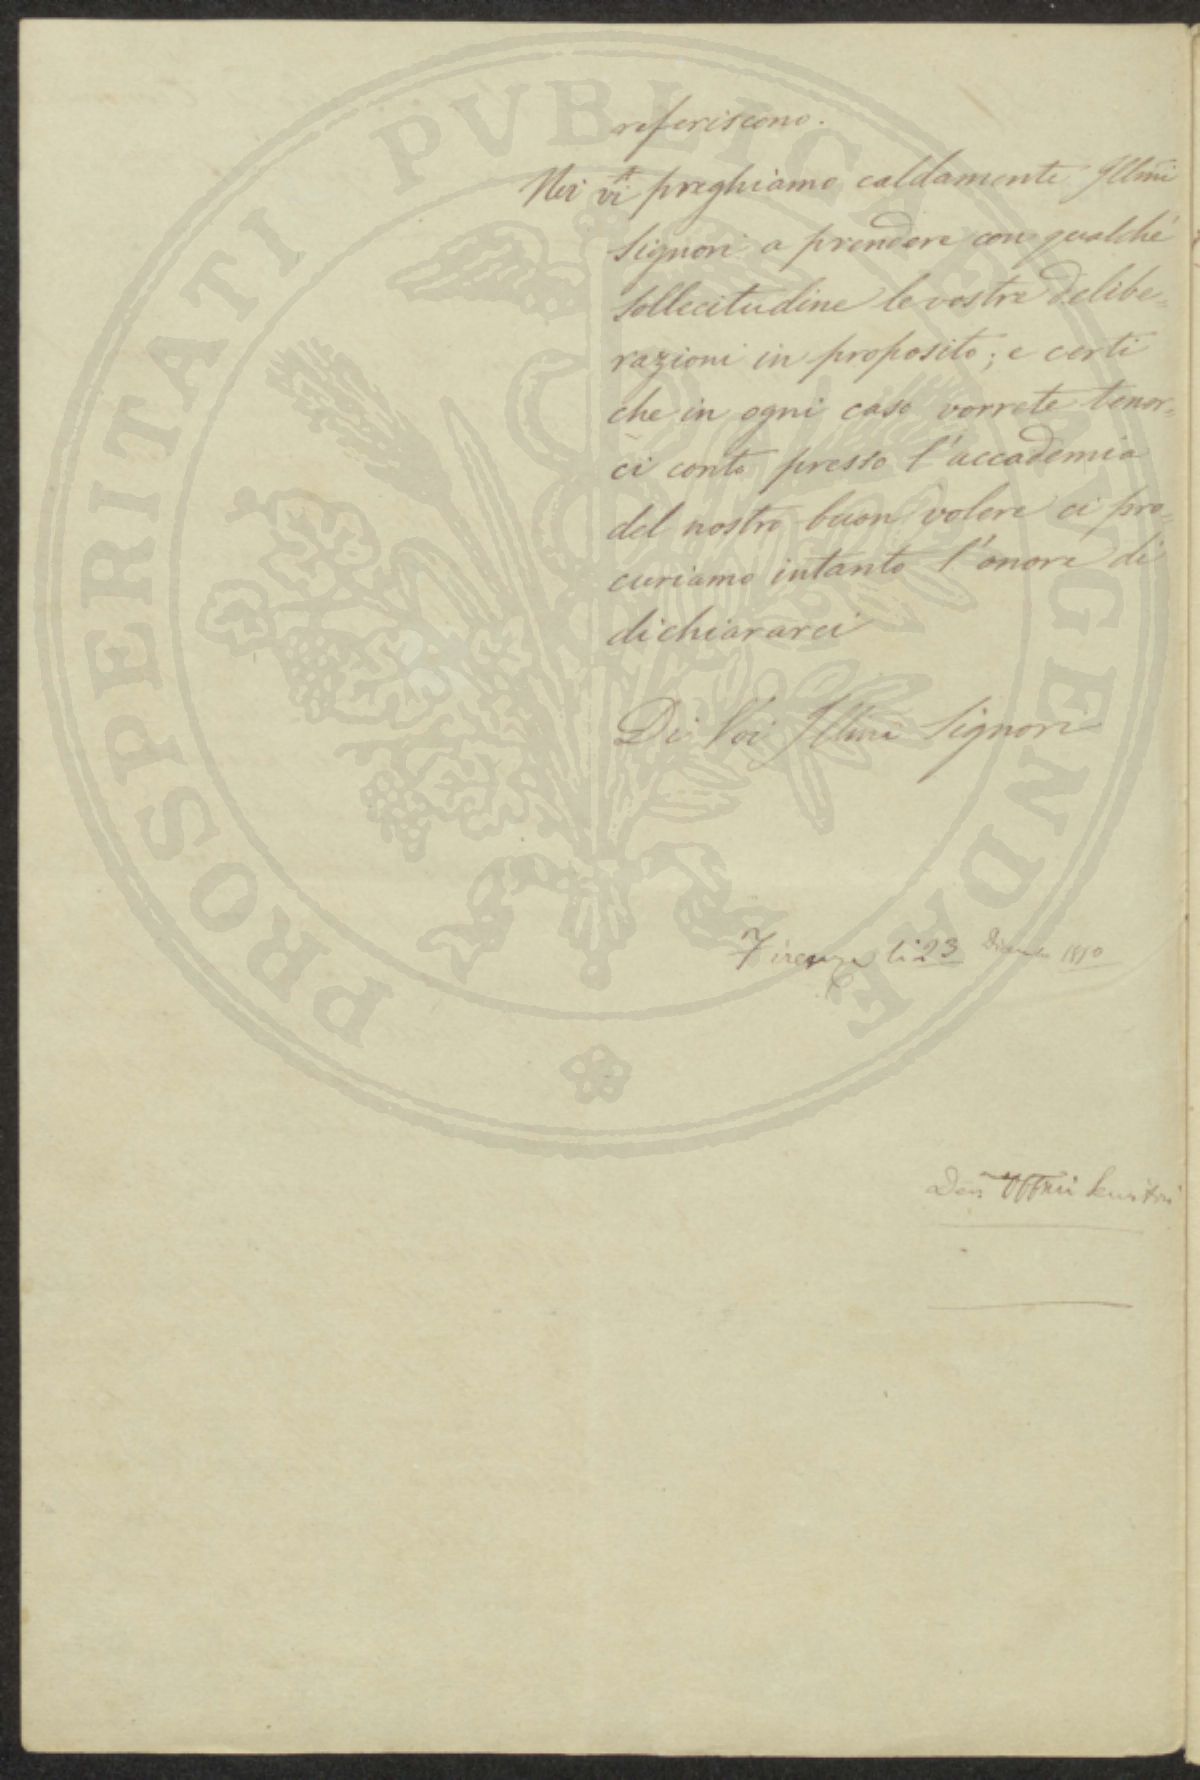 PROSPERITATI PVBLICAE AVGENDAE
referiscono.
Noi vi preghiamo caldamente Illmi
Signori a prendere con qualche
sollecitudine le vostre delibe=
razioni in proposito; e certi
che in ogni caso vorrete tener=
ci conto presso l'accademia
del nostro buon volere ci pro=
curiamo intanto l'onore di
dichiararci
Di Voi Illmi Signori
Firenze li 23 Dicembre 1850
Dev. Servitori